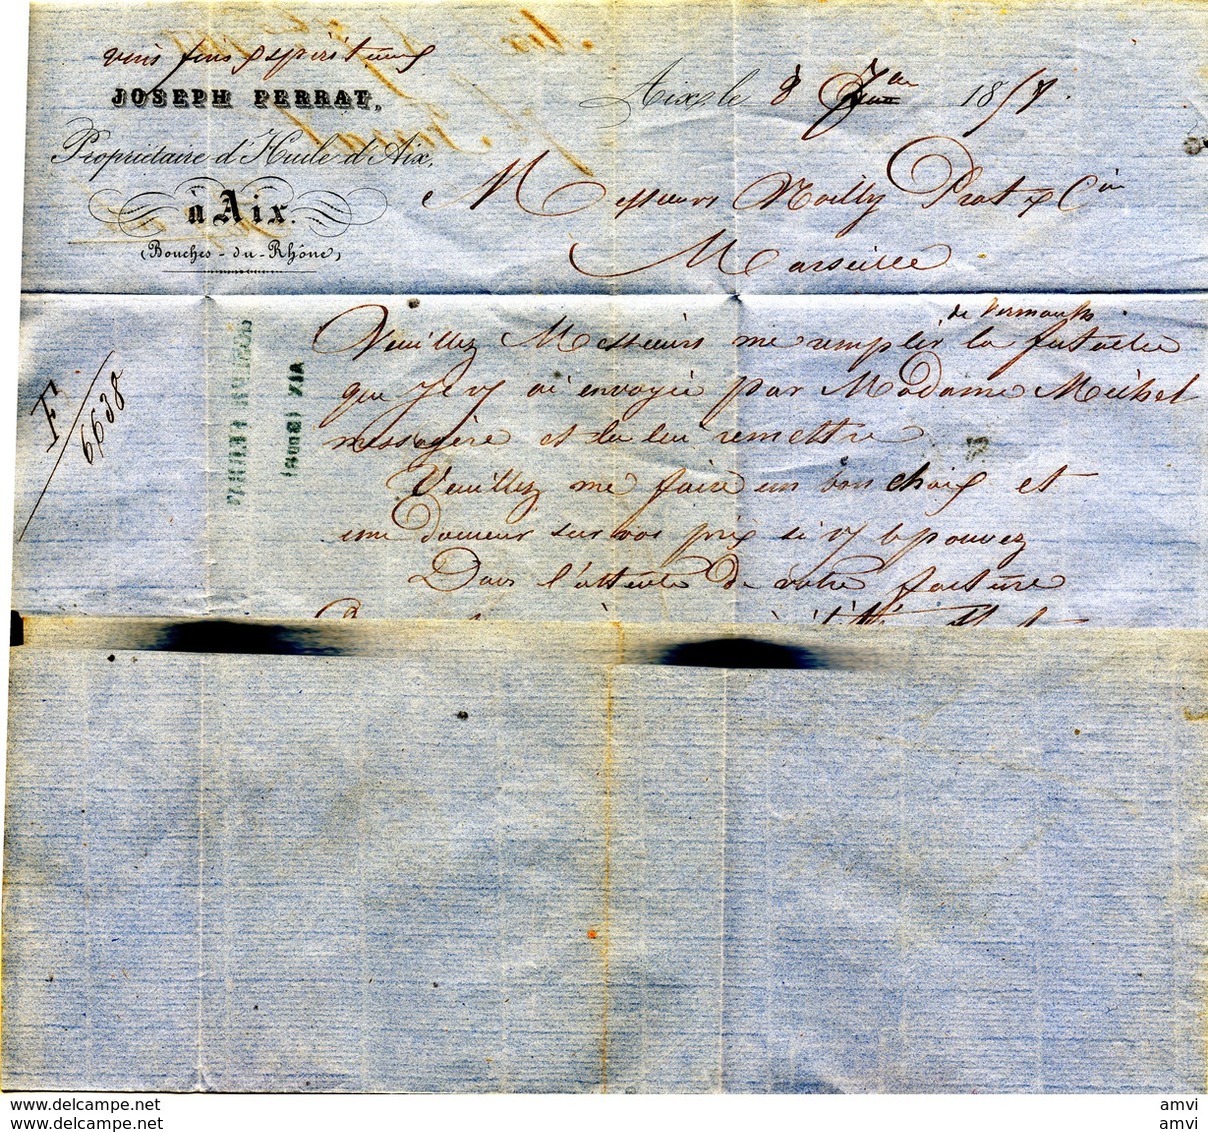 vins fins & spiritueux
JOSEPH PERRAT,
Propriétaire d'Huile d'Aix,
à Aix.
(Bouches-du-Rhône)
Aix, le 8 Jer 1857.
Messieurs Noilly Prat & Cie
Marseille
de vermouth
Veuillez Messieurs me remplir la futaille
que je vs ai envoyée par Madame Michel
messagère et la lui remettre
Veuillez me faire un bon choix et
une douceur sur vos prix si vs le pouvez
Dans l'attente de votre facture
F
6638
JOSEPH PERRAT
AIX (BOUCHES
www.delcampe.net
www.delcampe.net
amvi
amvi